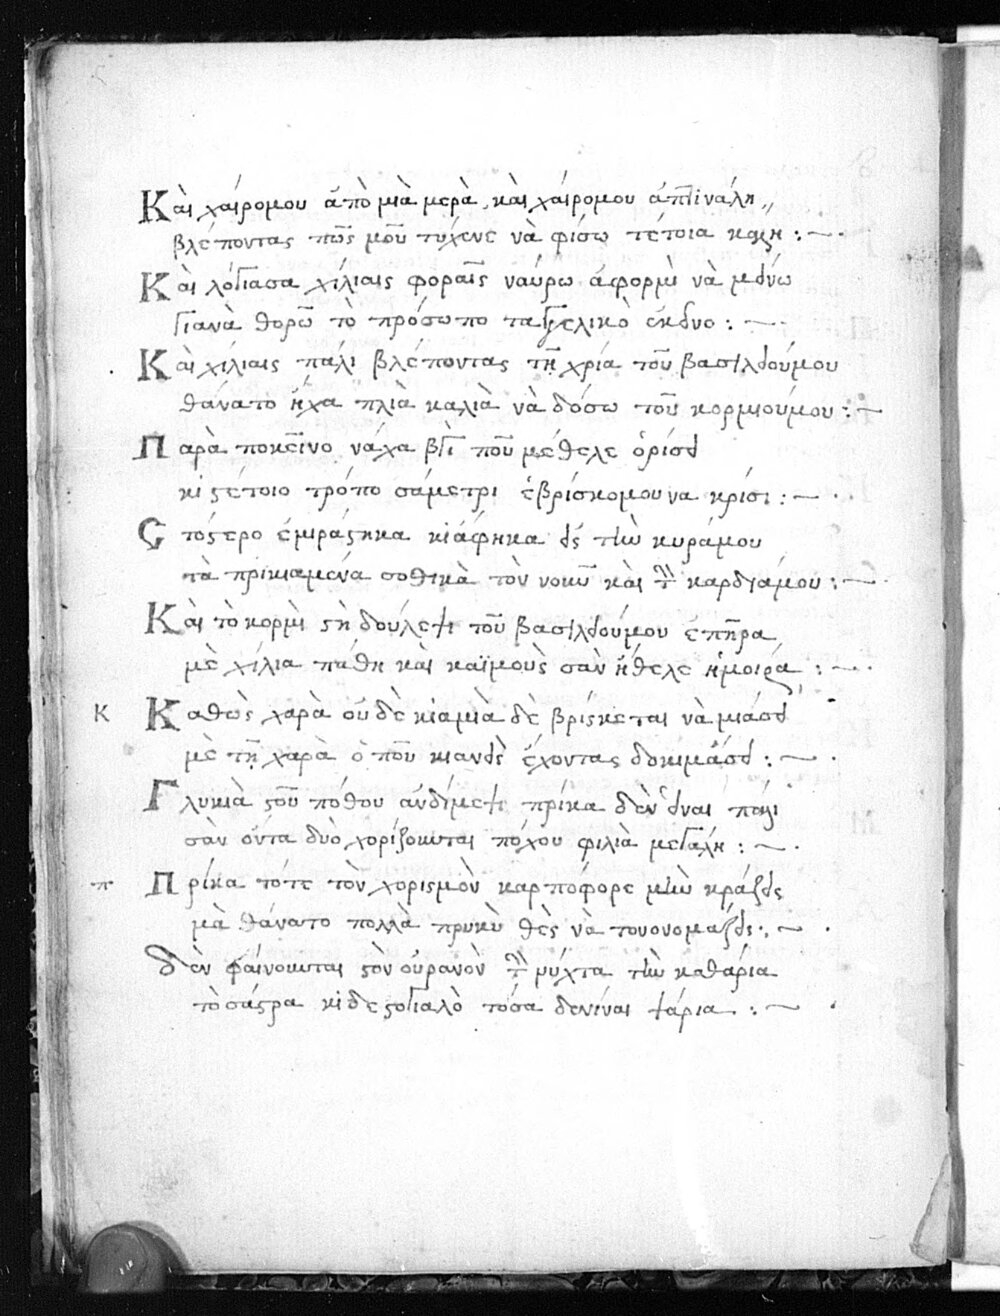 Κὰι χαίρομου ἀπὸ μιὰ μερὰ, κὰι χαίρομου ἀπτὶνάλη,,
βλέποντας πῶς μοῦ τυχένε νὰ φίσω τέτοια κάλη :~.
Κὰι λόγιασα χίλιαις φοραῖς ναύρω ἀφορμὶ νὰ μείνω
γιανὰ θορῶ τὸ πρόσωπο ταγγελικὸ ἐκείνο :~.
Κὰι χίλιαις πάλι βλέποντας τῆ χρία τοῦ βασιλείουμου
θάνατο ἤχα πλιὰ καλιὰ νὰ δόσω τοῦ κορμιούμου :~
Παρὰ ποκεῖνο νάχα βγῆ ποῦ μέθελε ὁρίσει
κὶ ςέτοιο τρόπο σάμετρι ἐβρίσκομουνα κρίσι :~.
Στόςερο ἐμιράςηκα κιάφηκα εἰς τὴν κυράμου
τὰ πρικιαμένα σοθικὰ τὸν νοῦν κὰι τὴ καρδιάμου :~.
Κὰι τὸ κορμὶ ςὴ δούλεψι τοῦ βασιλείουμου ἐπῆρα
μὲ χίλια πάθη κὰι καϊμοὺς σὰν ἤθελε ἡμοιρά :~.
Κ Καθὼς χαρὰ οὐδὲ κιαμιὰ δὲ βρίσκεται νὰ μιάσει
μὲ τῆ χαρὰ ὁποῦ κιανεὶς ἔχοντας δοκιμάσει :~.
Γλυκιὰ ςοῦ πόθου ἀνδίμεψι πρίκα δὲν εἶναι πάλι
σὰν ὅντα δυὸ χορίζουνται πόχου φιλιὰ μεγάλη :~.
π Πρίκα τότε τὸν χορισμὸν καρποφορε μὴν κράζεις
μὰ θάνατο πολλὰ πρικὺ θὲς νὰ τονονομάζεις :~.
Δὲν φαίνουνται ςὸν οὐρανὸν τὴ μύχτα τὴν καθάρια
τὸσάςρα κὶ δε ςογιαλὸ τόσα δενίναι ψάρια :~.